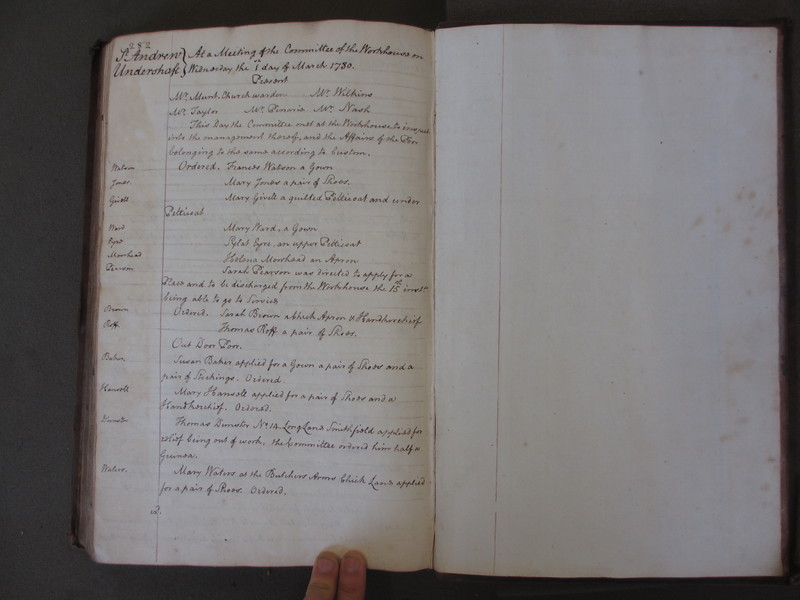 282
St. Andrew } At a Meeting of the Committee of the Workhouse on
Undershaft } Wednesday the 1st day of March 1780.
Present
Mr. Munt. Churchwarden Mr. Wilkins
Mr. Taylor Mr. Mr. Nash
This Day the Committee met at the Workhouse to inspect
into the management thereof, and the Affairs of the Poor
belonging to the same according to Custom.
Watson Ordered. Frances Watson a Gown
Jones Mary Jones a pair of Shoes.
Givell Mary Givell a quilted Petticoat and under
Petticoat
Ward Mary Ward, a Gown
Eyre Eyre, an upper Petticoat
Moorhead Helena Moorhead an Apron
Pearson Sarah Pearson was directed to apply for a
Place and to be discharged from the Workhouse the 15th inst.
being able to go to Service
Brown Ordered. Sarah Brown a Check Apron & Handkerchief
Roff. Thomas Roff a pair of Shoes.
Out Door Poor.
Baker Susan Baker applied for a Gown a pair of Shoes and a
pair of Stockings. Ordered.
Hansell Mary Hansell applied for a pair of Shoes and a
Handkerchief. Ordered.
Dunster Thomas Dunster No. 14. Long Lane Smithfield applied for
relief being out of work, the Committee ordered him half a
Guinea.
Waters. Mary Waters at the Butchers Arms Chick Lane applied
for a pair of Shoes. Ordered.
2.